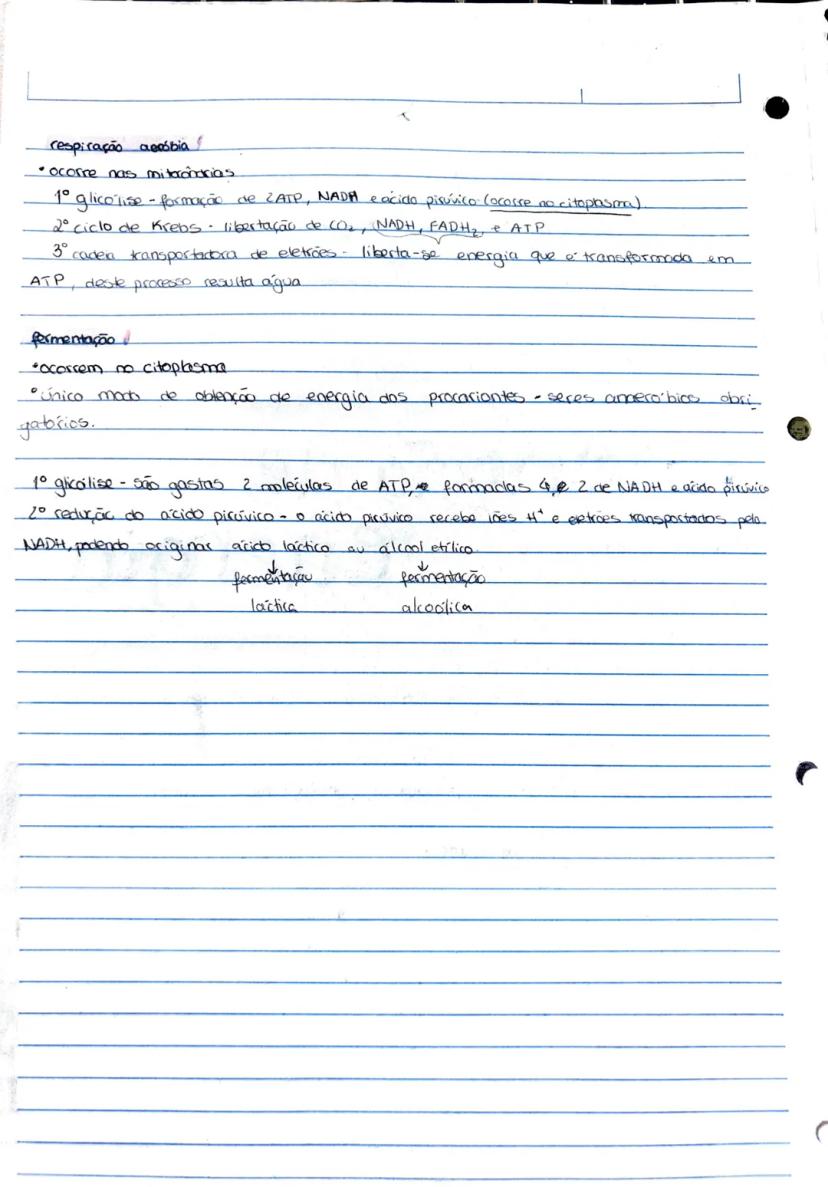 respiração aeróbia
• ocorre nas mitocôndrias
1º glicólise - formação de 2ATP, NADH e ácido pirúvico (ocorre no citoplasma)
2º ciclo de Krebs - libertação de CO₂, NADH, FADH₂, e ATP
3º cadeia transportadora de eletrões - liberta-se energia que é transformada em
ATP, deste processo resulta água
fermentação
• ocorrem no citoplasma
• único modo de obtenção de energia dos procariontes - seres anaeróbios obri-
gatórios.
1º glicólise - são gastas 2 moléculas de ATP, formadas 4, e 2 de NADH e ácido pirúvico
2º redução do ácido pirúvico - o ácido pirúvico recebe iões H⁺ e eletrões transportados pela
NADH, podendo originar ácido láctico ou álcool etílico
↓ ↓
fermentação fermentação
láctica alcoólica